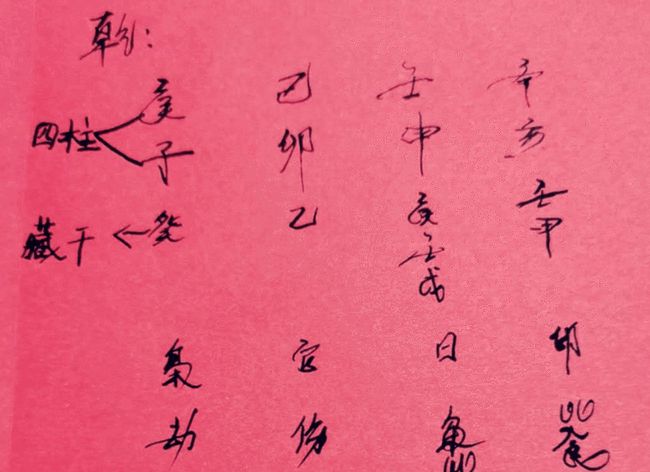 乾:
庚 己 壬 辛
四柱 子 卯 申 亥
藏干 癸 乙 庚 壬
壬 甲
戊
枭 官 日 印
劫 伤 枭